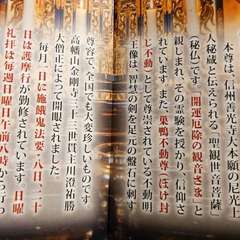 本尊は、信州善光寺大本願の尼光上
人秘蔵と伝えられる「聖観世音菩薩」
（秘仏）です。開運厄除の観音さまと
親しまれ、その霊験を授かり、信仰さ
れています。また、巣鴨不動尊（ほけ封
じ不動）として尊崇されている不動明
王像は、智慧の剣を足元の盤石に刺す
尊容で、全国でも大変珍しいものです
高幡山金剛寺三十三世貫主川澄祐勝
大僧正によって開眼されました。
毎月二日に施餓鬼法要・八日、二十
日は護摩行が勤修されています。日曜
礼拝は毎週日曜日午前八時から行っ